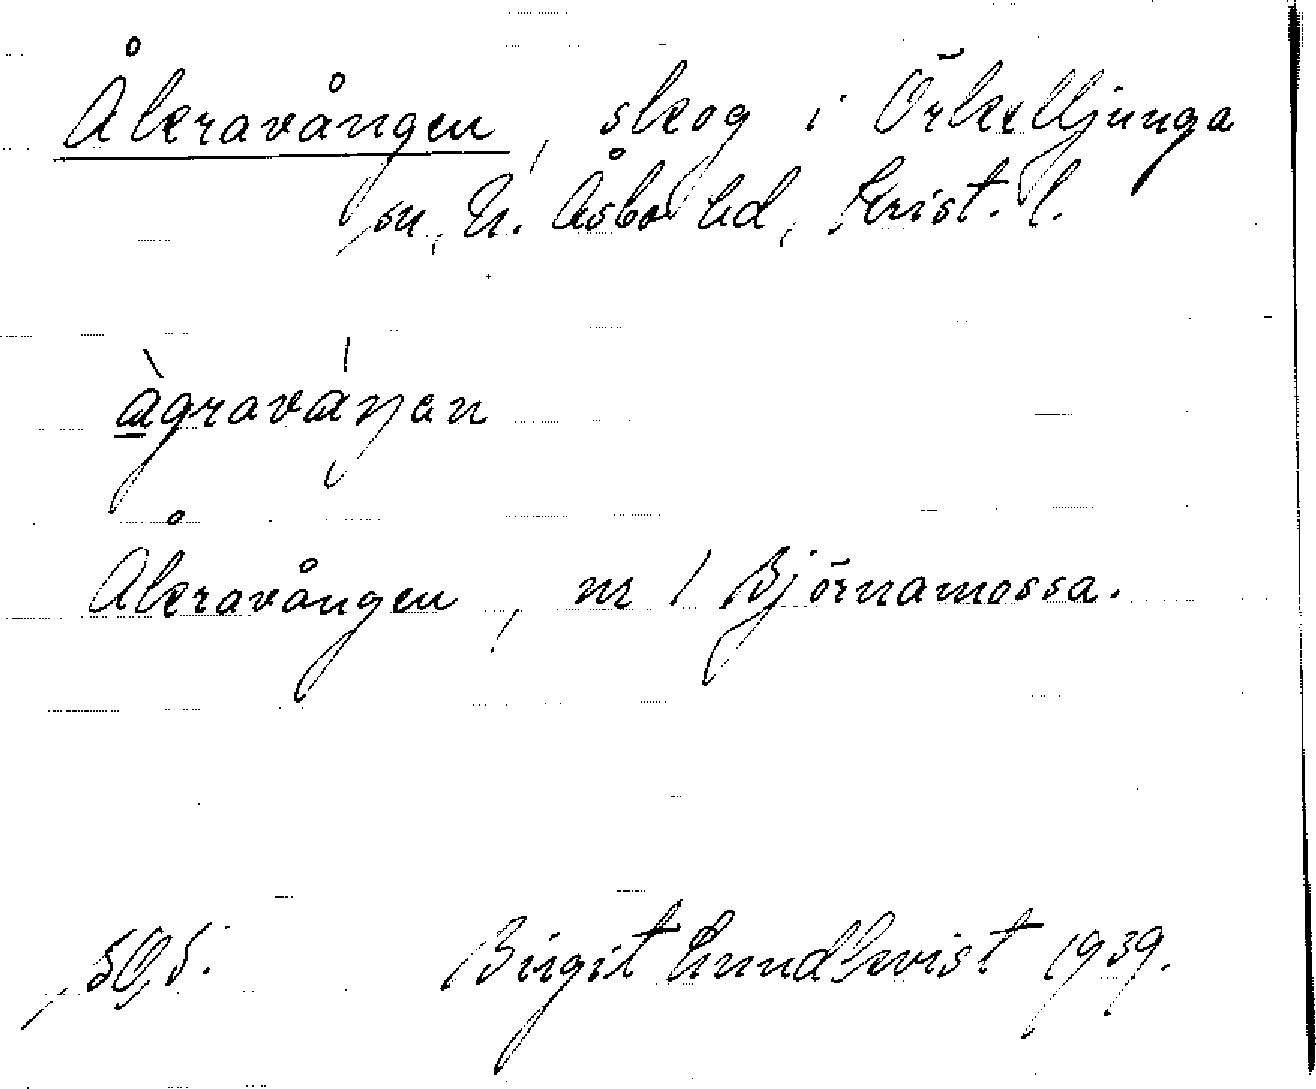 Åkravången, skog i Örkelljunga
sn, N. Åsbo hd, Krist. l.
àgraváŋan
Åkravången, nr 1 Björnamossa.
Birgit Lundkvist 1939.